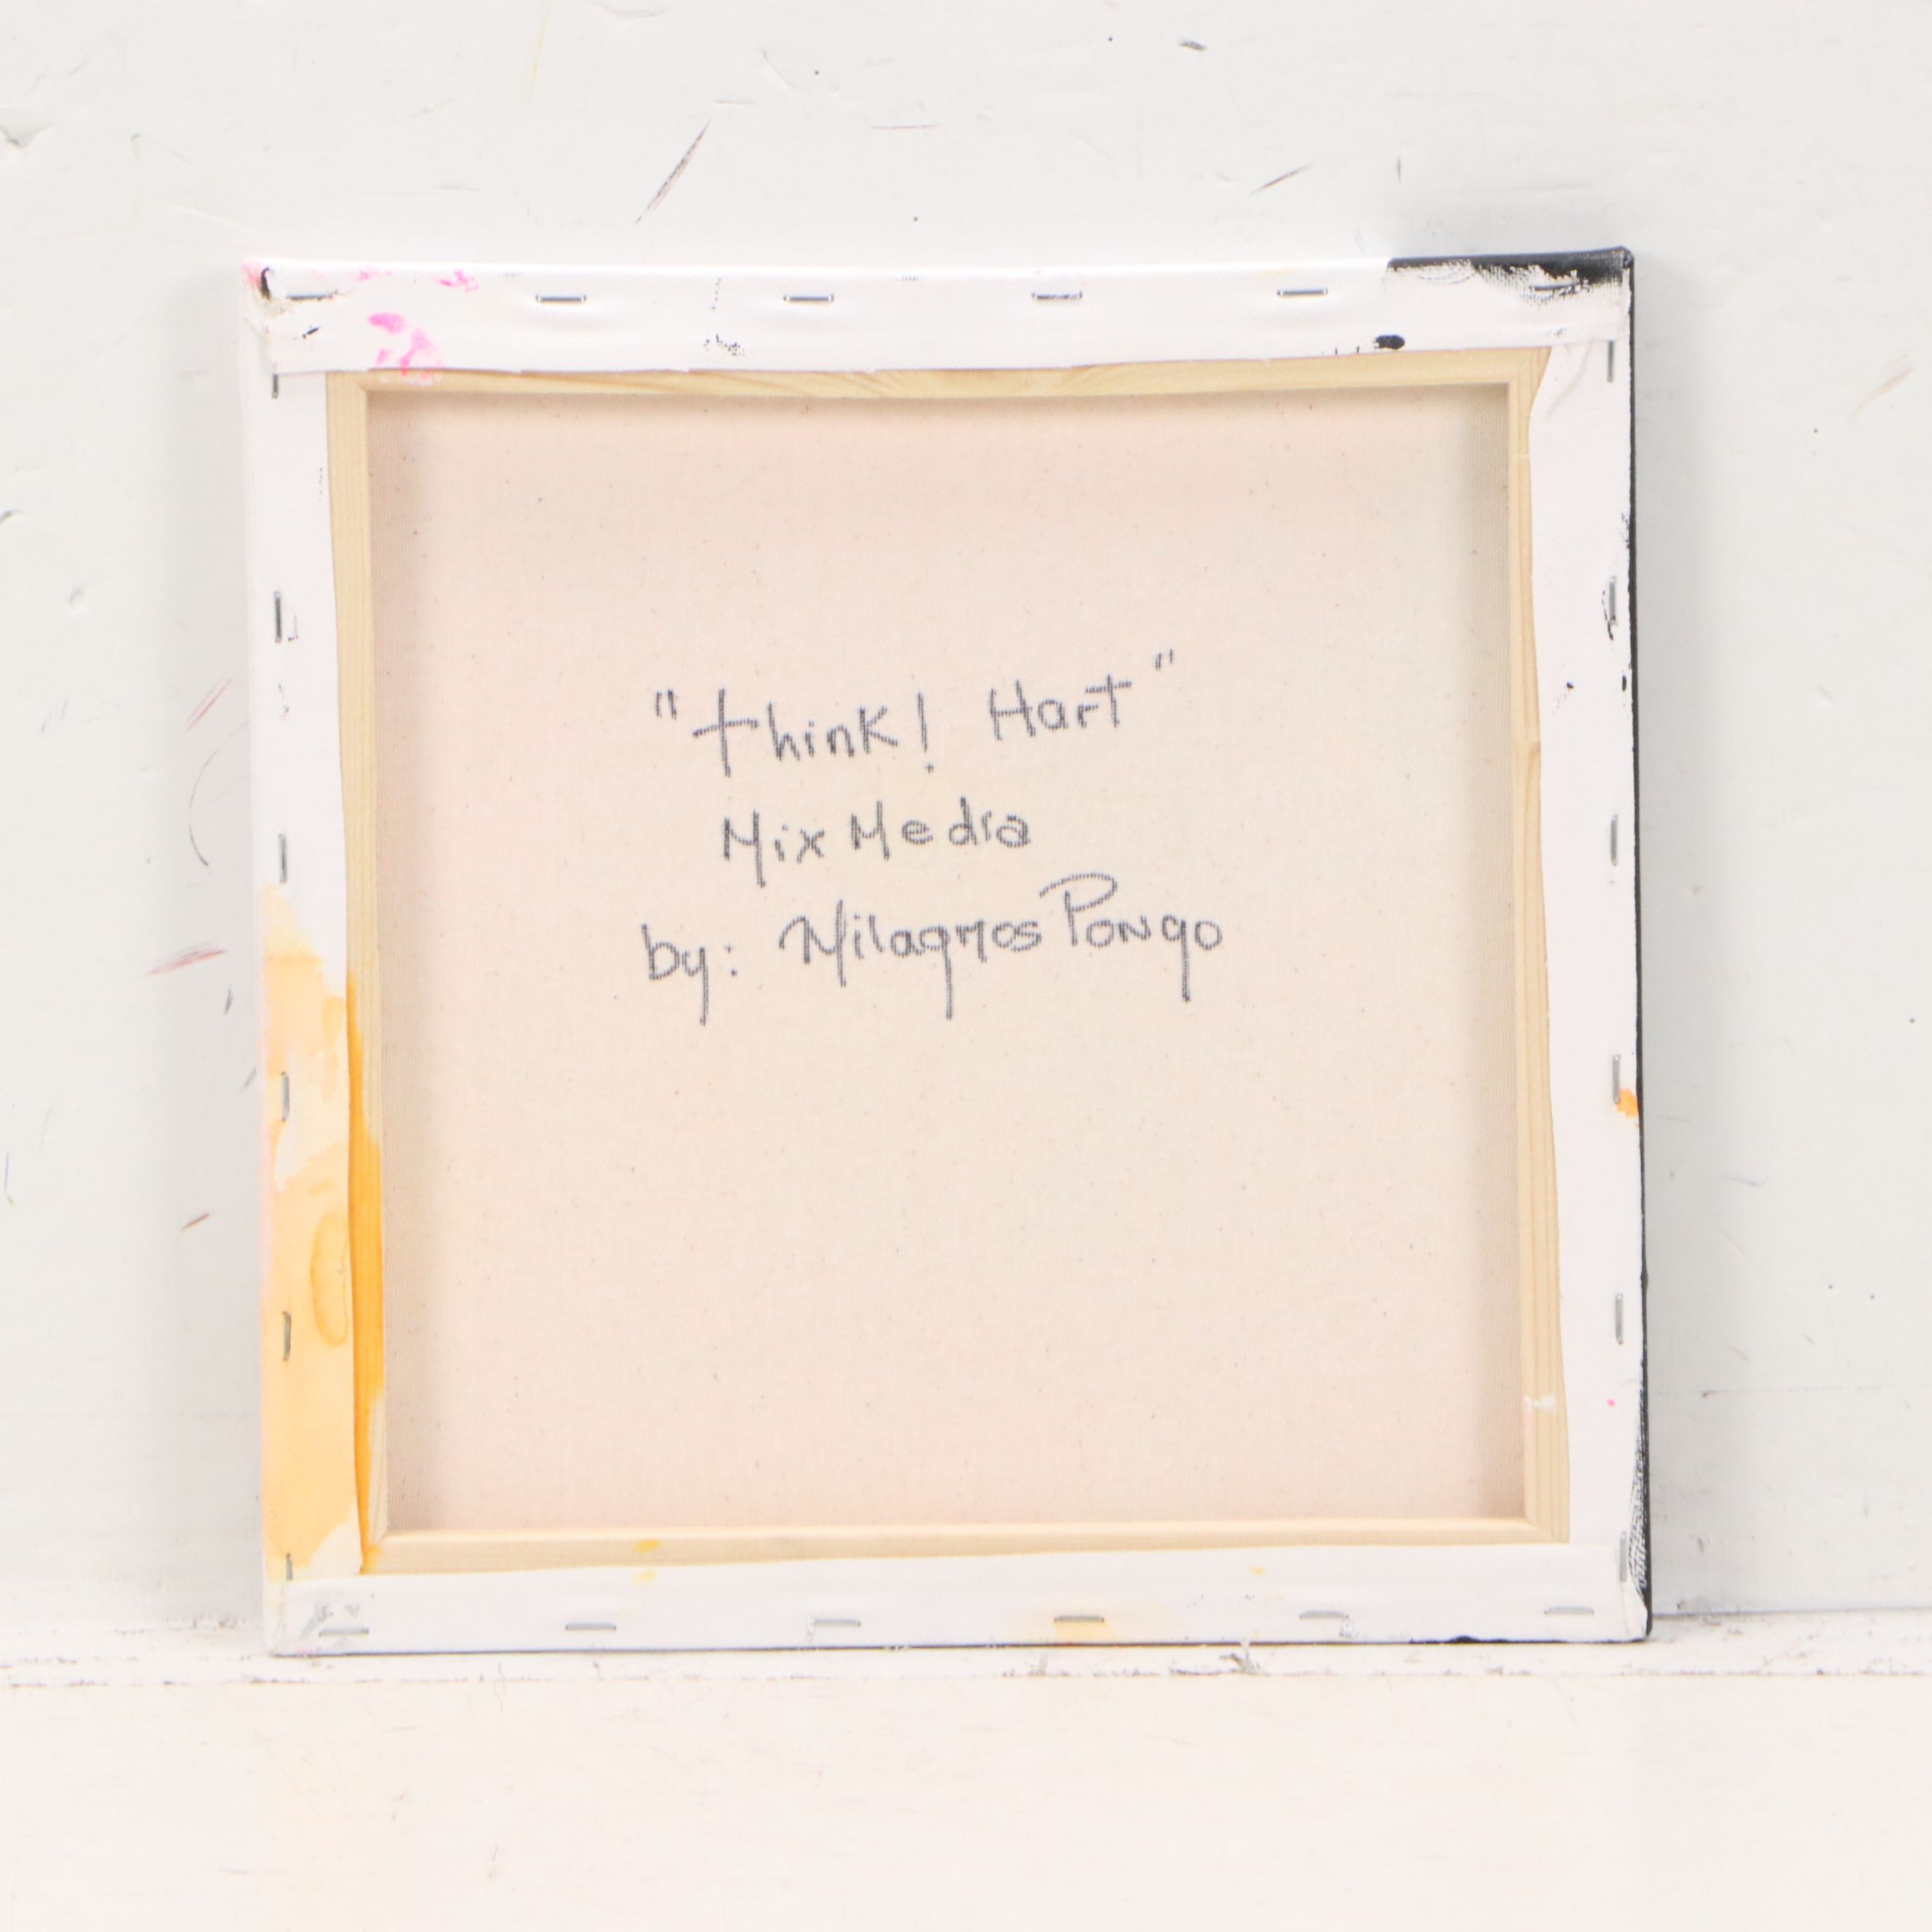 "Think! Hart"
Mix Media
by: Milagros Pongo